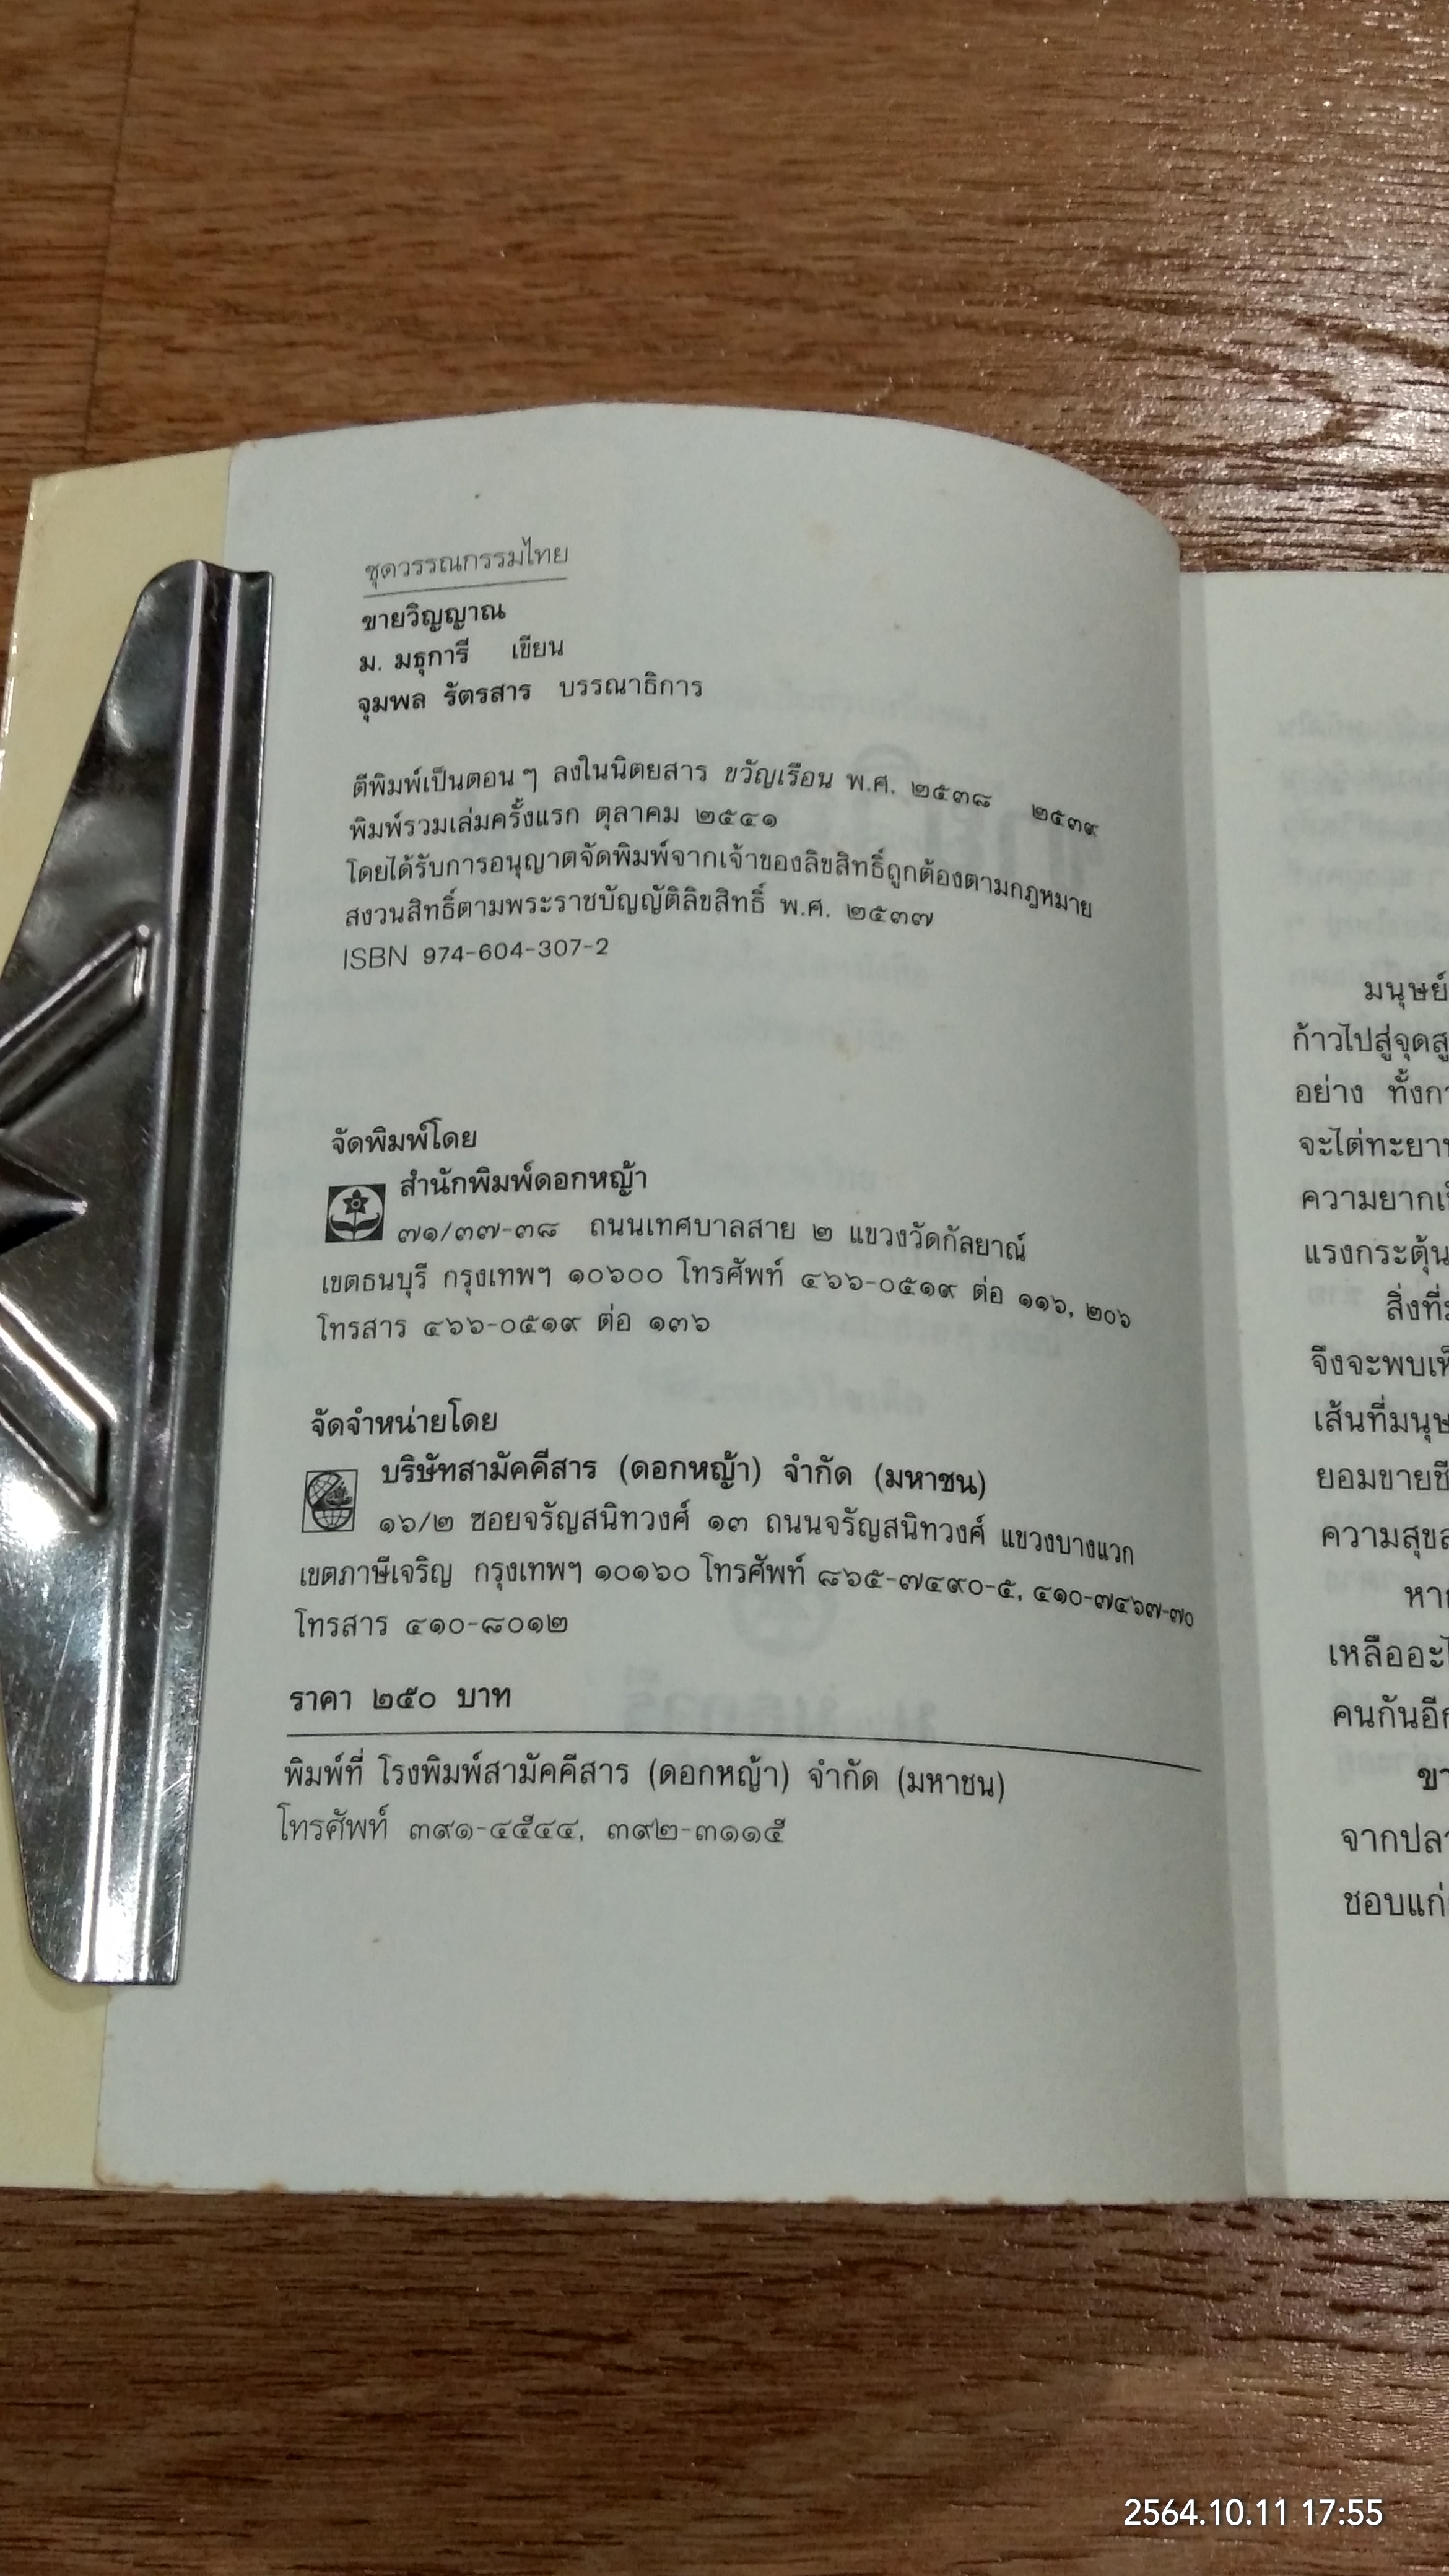 ชุดวรรณกรรมไทย
ขายวิญญาณ
ม. มธุการี เขียน
จุมพล รัตรสาร บรรณาธิการ
ตีพิมพ์เป็นตอน ๆ ลงในนิตยสาร ขวัญเรือน พ.ศ. ๒๕๓๘ ๒๕๓๙
พิมพ์รวมเล่มครั้งแรก ตุลาคม ๒๕๔๑
โดยได้รับการอนุญาตจัดพิมพ์จากเจ้าของลิขสิทธิ์ถูกต้องตามกฎหมาย
สงวนสิทธิ์ตามพระราชบัญญัติลิขสิทธิ์ พ.ศ. ๒๕๓๗
ISBN 974-604-307-2
จัดพิมพ์โดย
สำนักพิมพ์ดอกหญ้า
๗๑/๓๗-๓๘ ถนนเทศบาลสาย ๒ แขวงวัดกัลยาณ์
เขตธนบุรี กรุงเทพฯ ๑๐๖๐๐ โทรศัพท์ ๔๖๖-๐๕๑๙ ต่อ ๑๑๖, ๒๐๖
โทรสาร ๔๖๖-๐๕๑๙ ต่อ ๑๓๖
จัดจำหน่ายโดย
บริษัทสามัคคีสาร (ดอกหญ้า) จำกัด (มหาชน)
๑๖/๒ ซอยจรัญสนิทวงศ์ ๑๓ ถนนจรัญสนิทวงศ์ แขวงบางแวก
เขตภาษีเจริญ กรุงเทพฯ ๑๐๑๖๐ โทรศัพท์ ๘๖๕-๗๔๙๐-๕, ๔๑๐-๗๔๖๗-๗๐
โทรสาร ๔๑๐-๘๐๑๒
ราคา ๒๕๐ บาท
พิมพ์ที่ โรงพิมพ์สามัคคีสาร (ดอกหญ้า) จำกัด (มหาชน)
โทรศัพท์ ๓๙๑-๔๕๔๔, ๓๙๒-๓๑๑๕
มนุษย์
ก้าวไปสู่จุดสู
อย่าง ทั้งกา
จะไต่ทะยาน
ความยากเ
แรงกระตุ้น
สิ่งที่
จึงจะพบเห็
เส้นที่มนุษ
ยอมขายชี
ความสุขส
หาก
เหลืออะไ
คนกันอีก
ขา
จากปลา
ชอบแก่
2564.10.11 17:55